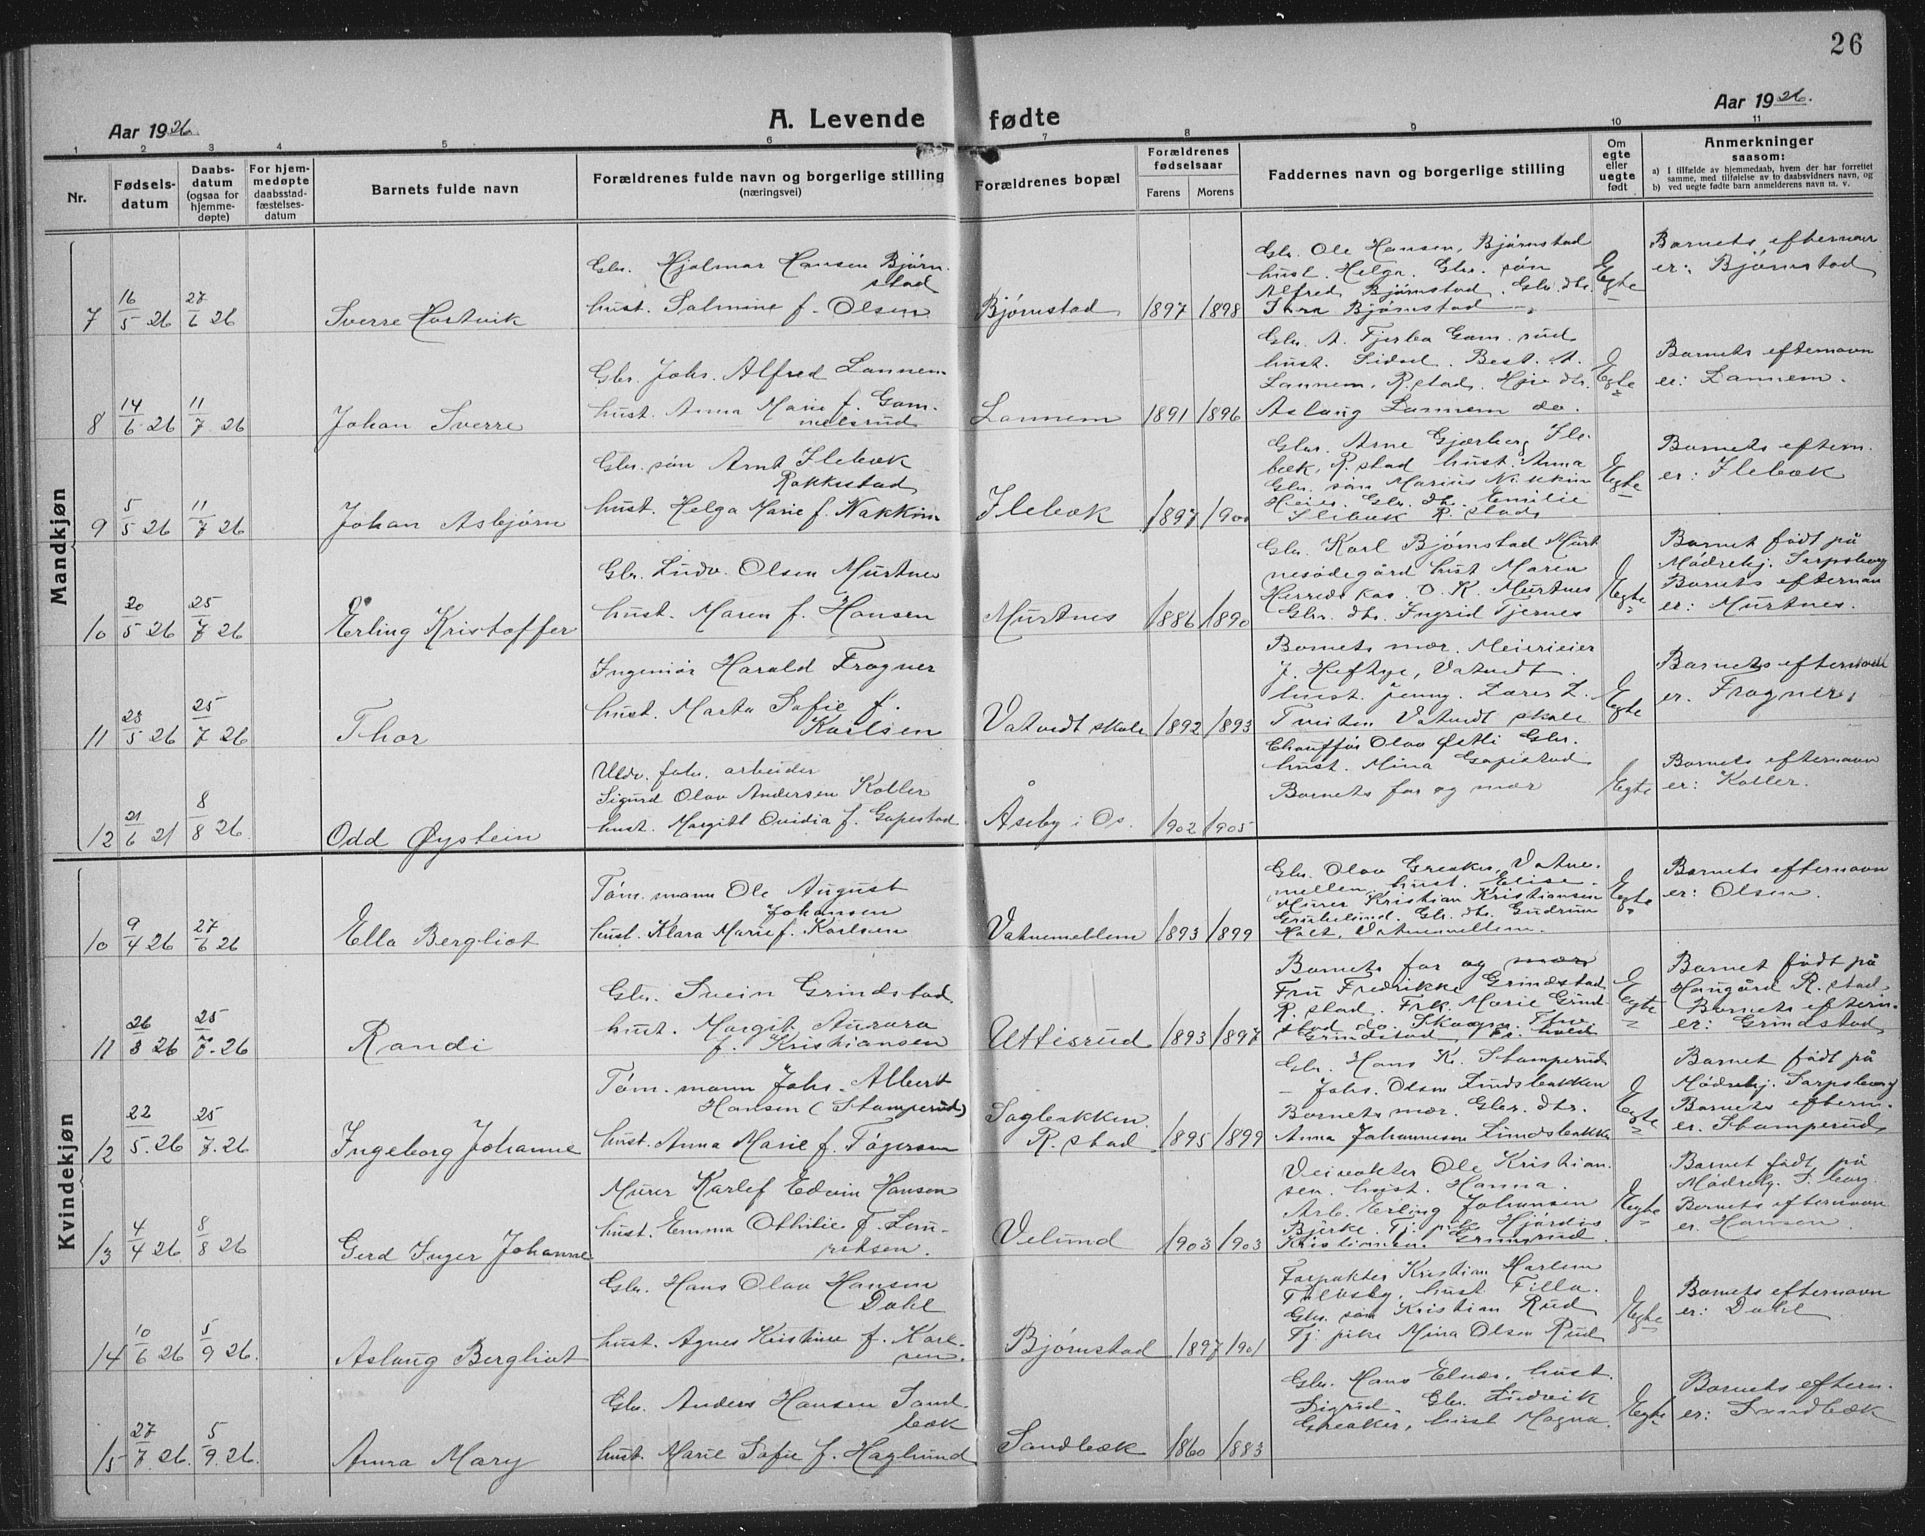 26
Aar 1926.
A. Levende fødte
Aar 1926.
1 2 3 4 5 6 7 8 9 10 11
Nr.
Fødsels-
datum
Daabs-
datum
(ogsaa for
hjemme-
døpte)
For hjem-
medøpte
daabsstad-
fæstelses-
datum
Barnets fulde navn
Forældrenes fulde navn og borgerlige stilling
(næringsvei)
Forældrenes bopæl
Forældrenes
fødselsaar
Farens Morens
Faddernes navn og borgerlige stilling
Om
egte
eller
uegte
født
Anmerkninger
saasom:
a) I tilfælde av hjemmedaab, hvem der har forrettet
samme, med tilføielse av to daabsvidners navn, og
b) ved uegte fødte barn anmelderens navn m. v.
Mandkjøn
7 16/5 26 27/6 26
Sverre
Gbr. Hjalmar Hansen Bjørn-
stad
hust. Salmine f. Olsen
Bjørnstad 1897 1898
Gbr. Ole Hansen, Bjørnstad
hust. Helga. Gbr. søn
Alfred Bjørnstad. Gbr. dtr.
Thra Bjørnstad
Egte
Barnets efternavn
er: Bjørnstad
8 14/6 26 11/7 26
Johan Sverre
Gbr. Johs. Alfred Lannem
hust. Anna Marie f. Gam-
melsrud
Lannem 1891 1896
Gbr. A. Gam. rud
hust. Sidsel. Best. A.
Lannem, R.stad. dtr.
Aslaug Lannem do.
Egte
Barnets efternavn
er: Lannem.
9 5/5 26 11/7 26
Johan Asbjørn
Gbr. søn Arnt Ilebæk
Rakkestad
hust. Helga Marie f. Nakkim
Ilebæk 1897 1900
Gbr. Arne Gjærberg Ile-
bæk, R.stad hust. Anna
Gbr. søn Marius
Gbr. dtr. Emilie
Ilebæk R.stad
Egte
Barnets eftern.
er: Ilebæk
10 20/5 26 25/7 26
Erling Kristoffer
Gbr. Ludv. Olsen Murtnes
hust. Maren f. Hansen
Murtnes 1886 1890
Gbr. Karl Bjørnstad Murt
nesødegård hust Maren
Herreds kas. O. K. Murtnes
Gbr. dtr. Ingrid Tjernes
Egte
Barnet født på
Mødrehj. Sarpsborg
Barnets efternavn
er: Murtnes.
11 23/5 26 25/7 26
Thor
Ingeniør Harald Frogner
hust. Marta Sofie f.
Karlsen
Vatvedt skole 1892 1893
Barnets mor. Meierieier
J. Heftye, Vatvedt.
hust. Jenny. Lærer L.
Tveiten Vatvedt skole
Egte
Barnets efternavn
er. Frogner.
12 21/6 21 8/8 26.
Odd Øystein
Uldv. fabr. arbeider
Sigurd Olav Andersen Koller
hust. Margitt Ovidia f. Gapestad
Åseby i Os. 1902 1905
Chauffør Olav Østli Gbr.
hust. Mina Gapestad
Barnets far og mor
Egte
Barnets efternavn
er: Koller.
Kvindekjøn
10 9/4 26 27/6 26
Ella Bergliot
Tøm. mann Ole August
Johansen
hust. Klara Marie f. Karlsen
Vatnemellem 1893 1899
Gbr. Olav Greaker, Vatne-
mellem hust. Elise.
Murer Kristian Kristiansen
Grubelund. Gbr. dtr. Gudrun
Holt, Vatnemellem.
Egte
Barnets efternavn
er: Olsen.
11 26/3 26 25/7. 26
Randi
Gbr. Svein Grindstad
hust. Margit Aurora
f. Kristiansen
Uttisrud 1893 1897
Barnets far og mor
Fru Fredrikke Grindstad
R.stad. Frk. Marie Grind
stad do.
Grindstad,
Egte
Barnet født på
Haugård R.stad
Barnets eftern.
er: Grindstad
12 22/5. 26 25/7. 26
Ingeborg Johanne
Tøm. mann Johs. Albert
Hansen (Stamperud)
hust. Anna Marie f. Tøgersen
Sagbakken
R.stad 1895 1899
Gbr. Hans K. Stamperud
— Johs. Olsen Lundsbakken
Barnets mor. Gbr. dtr.
Anna Johannesen Lundsbakke
Egte
Barnet født på
Mødrehj. Sarpsborg
Barnets eftern.
er. Stamperud
13 4/4 26 8/8 26
Gerd Inger Johanne
Murer Karlef Edvin Hansen
hust. Emma Othilie f. Lau-
ritsen.
Velund 1903 1903
Veivokter Ole Kristian-
sen. hust. Hanna.
Arb. Erling Johansen
Bjerke. Tj. pike Hjørdis
Kristiansen. Grimsrud.
Egte
Barnet født på
Mødrehj. S.borg.
Barnets efternavn
er. Hansen.
14 10/6 26 5/9 26.
Aslaug Bergliot
Gbr. Hans Olav Hansen
Dahl
hust. Agnes Kristine f. Karl-
sen.
Bjørnstad 1897 1901
Forpakter Kristian Karlsen
hust Tilla.
Gbr. søn Kristian Rud
Tj. pike Mina Olsen Rud
Egte
Barnets efternavn
er: Dahl
15 27/7. 26. 5/9. 26.
Anna Mary
Gbr. Anders Hansen Sand
bæk
hust. Marie Sofie f. Haglund
Sandbæk 1860 1883
Gbr. Hans hust.
Sigrid. Gbr. Ludvik
Greaker, hust Magna.
Egte
Barnets eftern.
er: Sandbæk